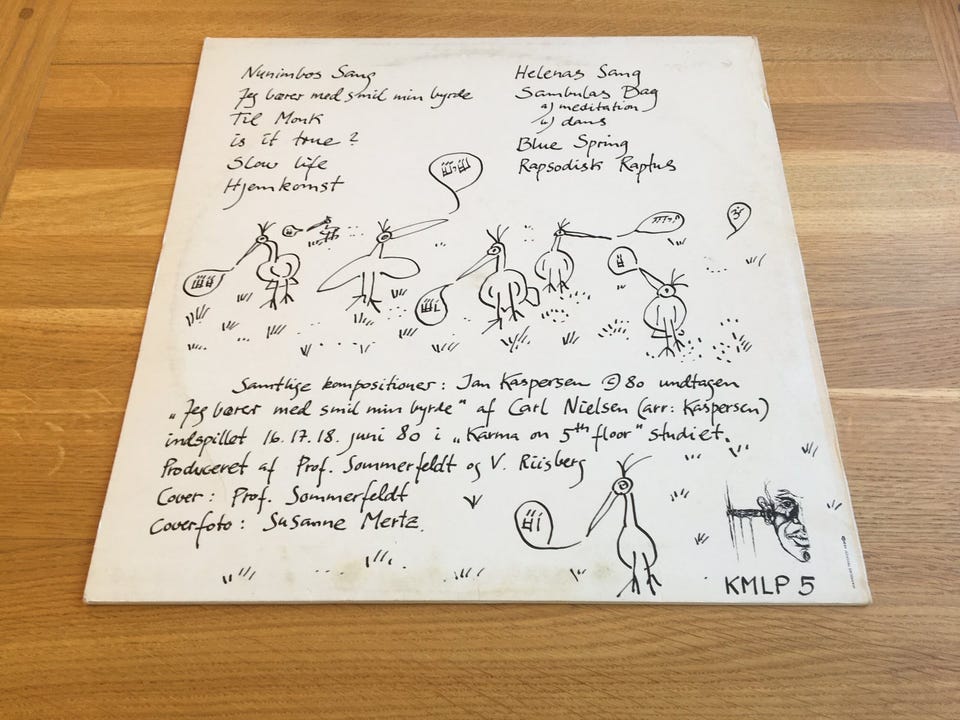 Nunimbos Sang
Jeg bærer med smil min byrde
Til Monk
is it true?
Slow life
Hjemkomst
Helenas Sang
Sambulas Dag
a) meditation
b) dans
Blue Spring
Rapsodisk Raptus
Samtlige kompositioner: Jan Kaspersen © 80 undtagen
„Jeg bærer med smil min byrde" af Carl Nielsen (arr: Kaspersen)
indspillet 16. 17. 18. juni 80 i „Karma on 5th floor" studiet.
Produceret af Prof. Sommerfeldt og V. Riisberg
Cover: Prof. Sommerfeldt
Coverfoto: Susanne Mertz.
KMLP 5